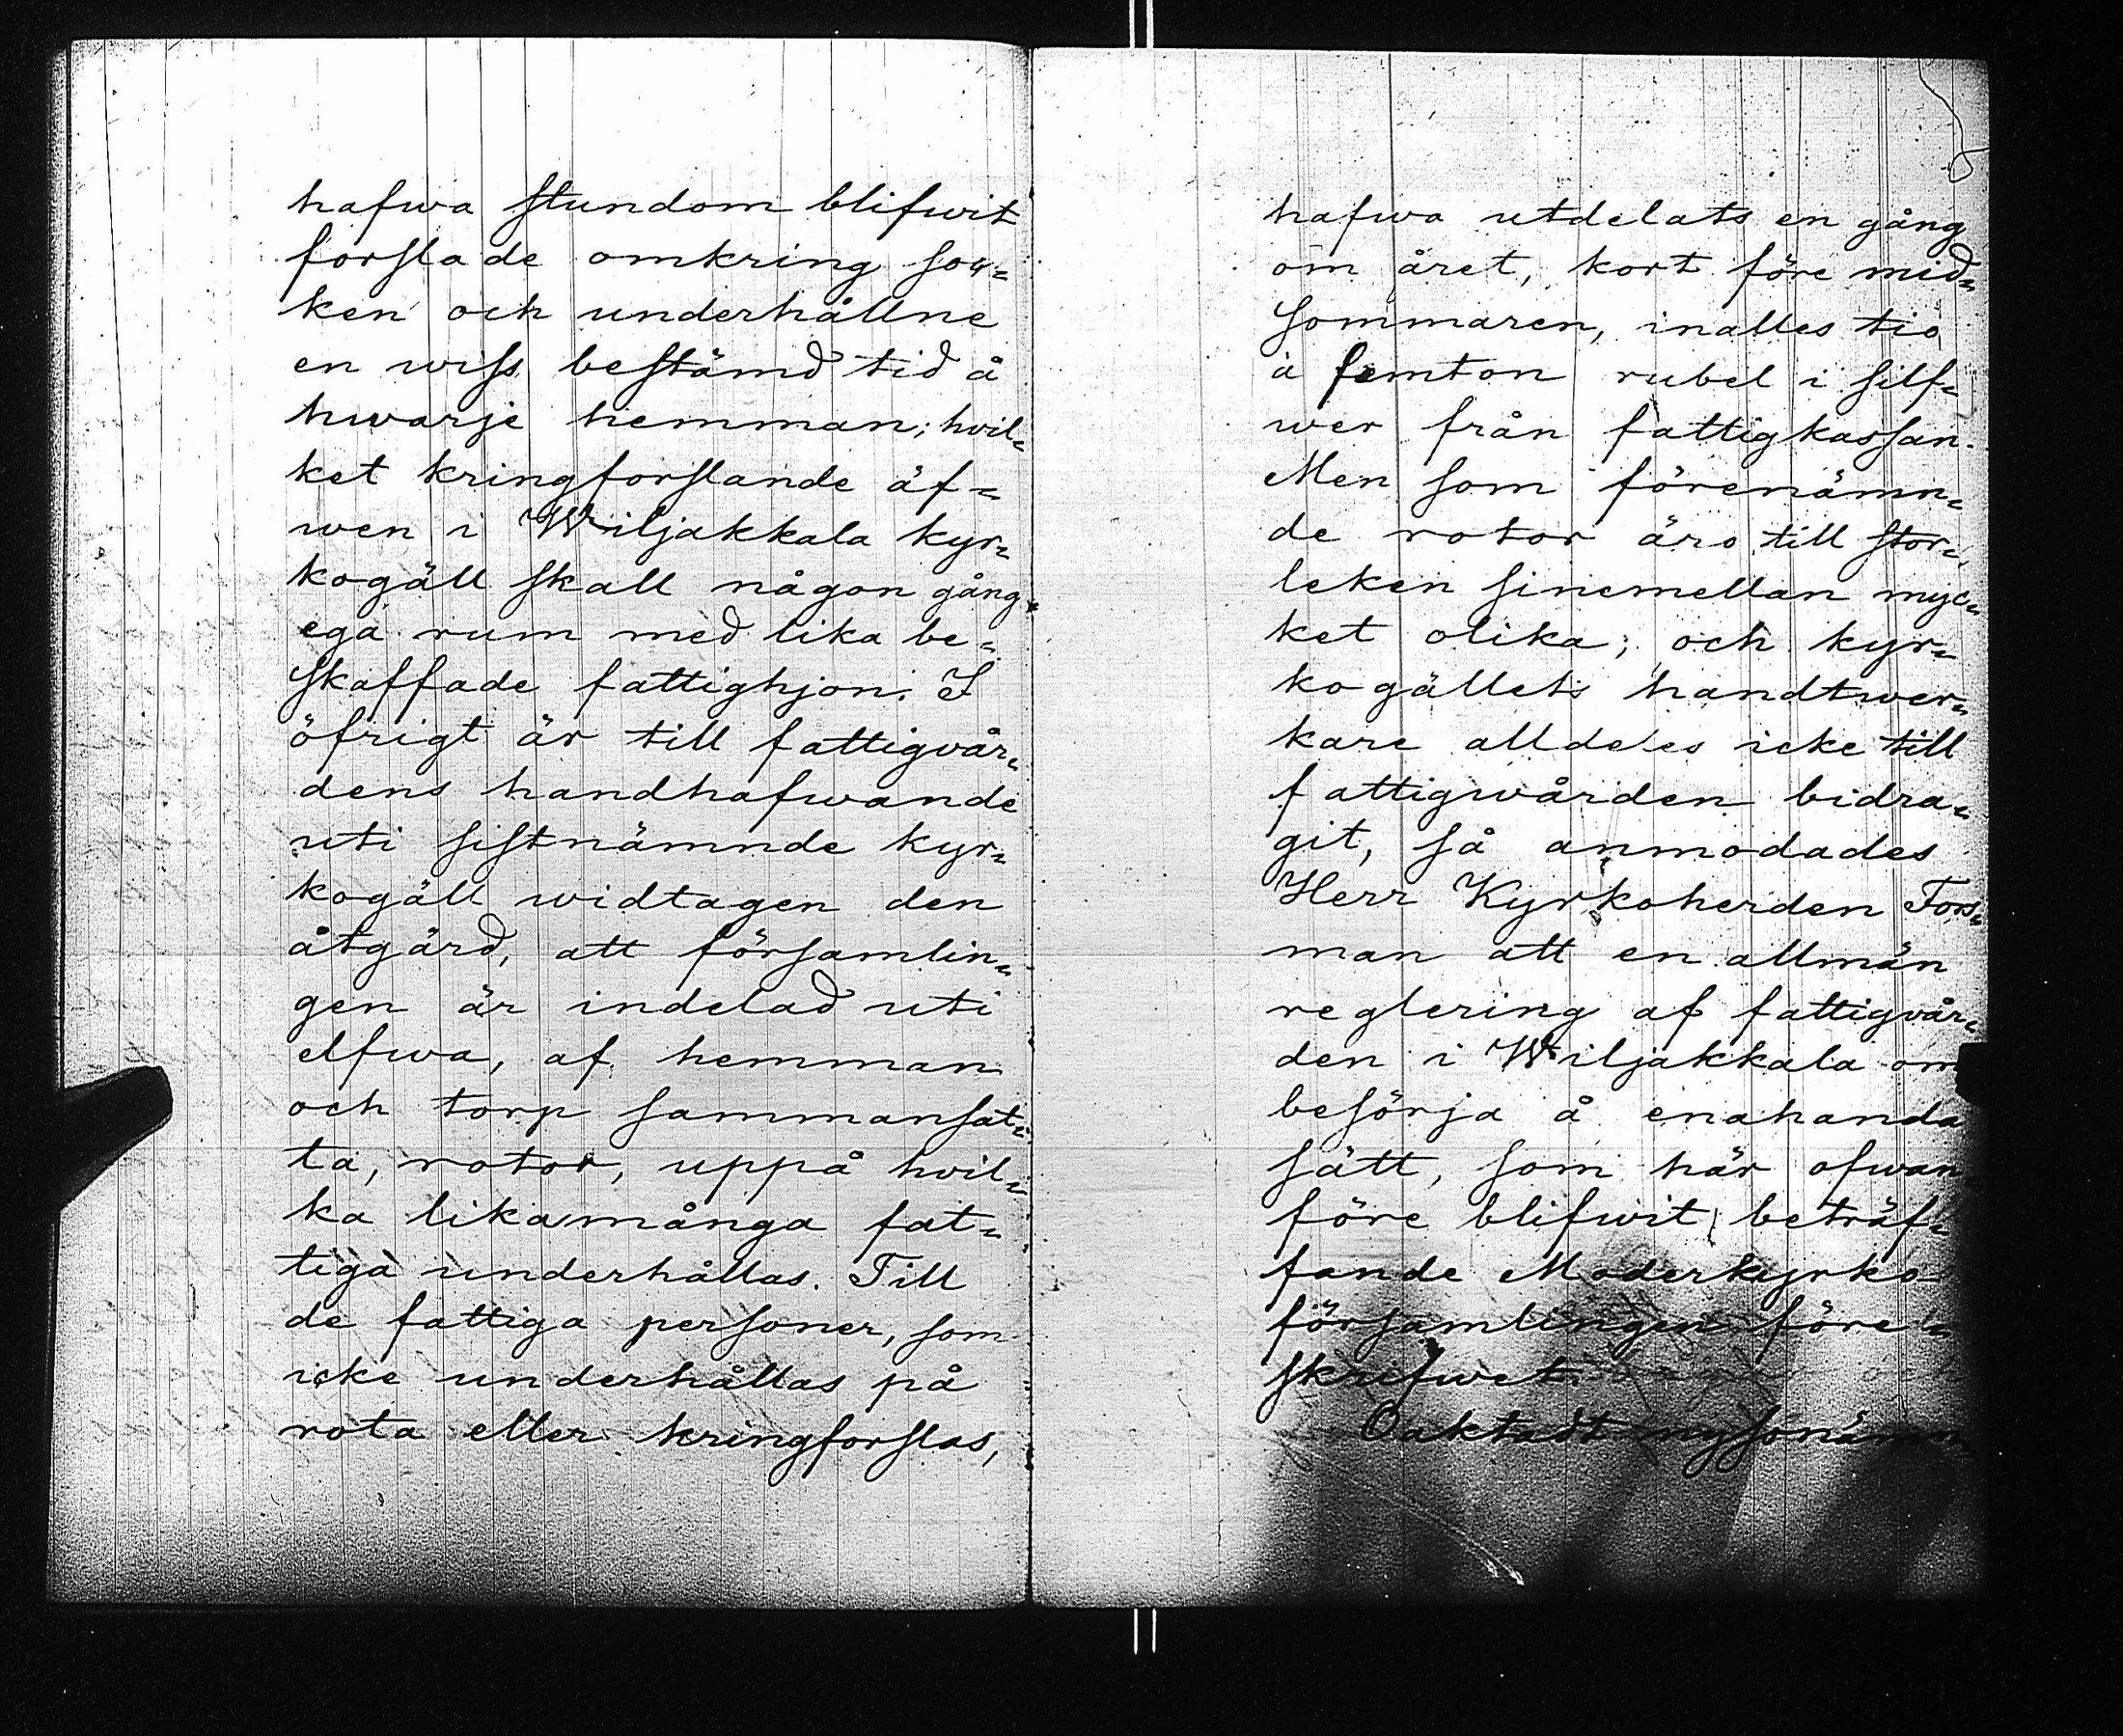 hafwa stundom blifwit
forslade omkring sou=
ken och underhållne
en wiss bestämd tid å
hwarje hemman; hvil=
ket kringforslande äf=
wen i Wiljakkala kyr=
kogäll skall någon gång
ega rum med lika be=
skaffade fattighjon. I
öfrigt är till fattigvår=
dens handhafwande
uti sistnämnde kyr=
kogäll widtagen den
åtgärd, att församlin=
gen är indelad uti
elfwa, af hemman
och torp sammansat=
ta, rotor, uppå hvil=
ka likamånga fat=
tiga underhållas. Till
de fattiga personer, som
icke underhållas på
rota eller kringforslas,
hafwa utdelats en gång
om året, kort före mid=
sommaren, inalles tio
à femton rubel i silf=
wer från fattigkassan.
Men som förenämn=
de rotor äro till stor=
leken sinemellan myc=
ket olika; och kyr=
kogällets handtwer=
kare alldeles icke till
fattigwården bidra=
git, så anmodades
Herr Kyrkoherden Fors=
man att en allmän
reglering af fattigvår=
den i Wiljakkala om
besörja å enahanda
sätt, som här ofwan
före blifwit beträf=
fande Moderkyrko
församlingen före=
skrifwet.
Oaktadt